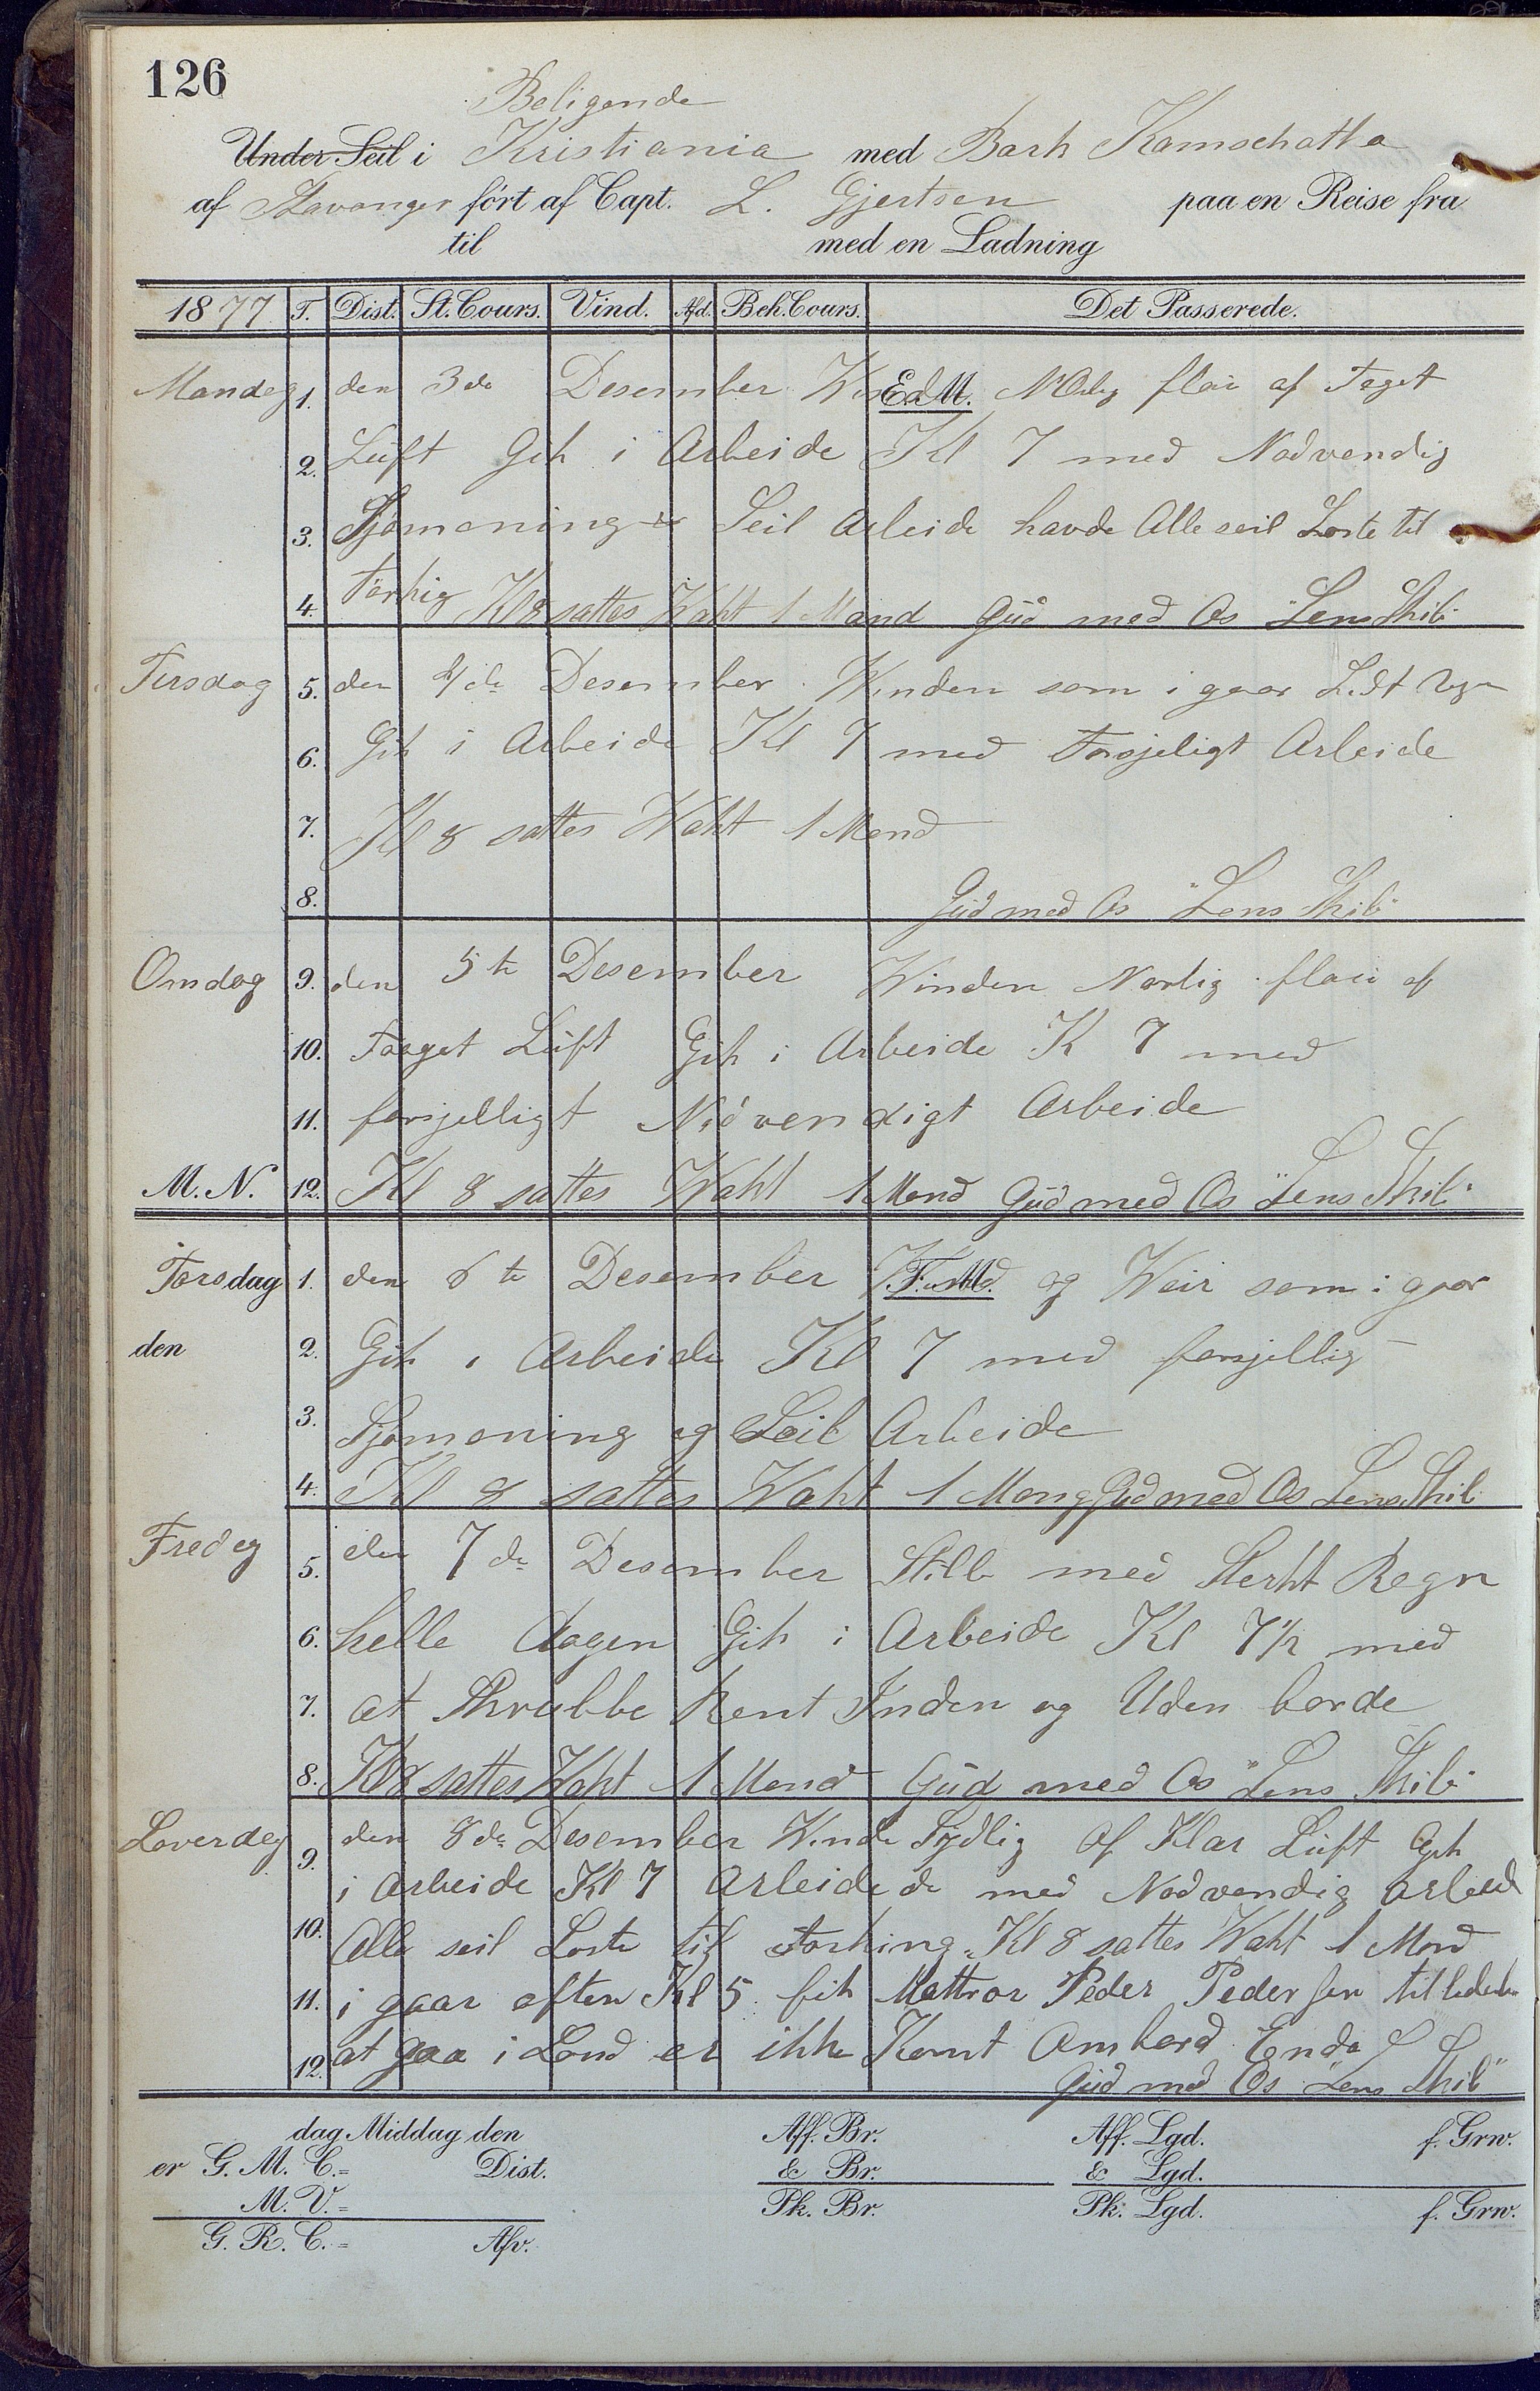 126
Beligende
Under Seil i Kristiania med Bark Kamschatka
af Stavanger fört af Capt. L. Gjertsen paa en Reise fra
til med en Ladning
1877 T. Dist. St. Cours. Vind. Afd. Beh. Cours. Det Passerede.
Mandag 1. den 3de Desember E.d.M. NOlig flau af Taget
2. Lüft Gik i Arbeide Kl 7 med Nodvendig
3. Sjömoning Seil Arbeide havde Alle seil Loste til
4. Törkig Kl 8 sattes Vakt 1 Mand Güd med Os "Lens Skib"
Tirsdag 5. den 4de Desember Winden som i gaar Lidt
6. Gik i Arbeide Kl 7 med Forsjeligt Arbeide
7. Kl 8 sattes Wakt 1 Mand
8. Güd med Os "Lens Skib"
Onsdag 9. den 5te Desember Winden Norlig flau af
10. Taaget Lüft Gik i Arbeide K 7 med
11. forsjelligt Nödvendigt Arbeide
M. N. 12. Kl 8 sattes Wakt 1 Mand Güd med Os "Lens Skib"
Torsdag 1. den 6te Desember F.M. og Weir som i gaar
den 2. Gik i Arbeide Kl 7 med forsjellig
3. Sjömoning og Seil Arbeide
4. Kl 8 sattes Wakt 1 Mang Güd med Os Lens Skib
Fredag 5. den 7de Desember Stille med Sterkt Regn
6. helle dagen Gik i Arbeide Kl 7½ med
7. at Skrubbe Rent Inden og Uden borde
8. Kl 8 sattes Wakt 1 Mand Güd med Os "Lens Skib"
Loverdag 9. den 8de Desember Winde Sydlig af Klar Lüft Gik
i Arbeide Kl 7 Arbeidede med Nodvendig Arbeid
10. Alle seil Loste til Torking Kl 8 sattes Wakt 1 Mand
11. i gaar aften Kl 5 fik Mattros Peder Pedersen til
12. at gaa i Land er ikke Komt Ambord Enda
Güd med Os "Lens Skib"
dag Middag den Aff. Br. Aff. Lgd. f. Grw.
er G. M. C.= Dist. & Br. & Lgd.
M. V.= Pk. Br. Pk. Lgd. f. Grw.
G. R. C.= Afv.